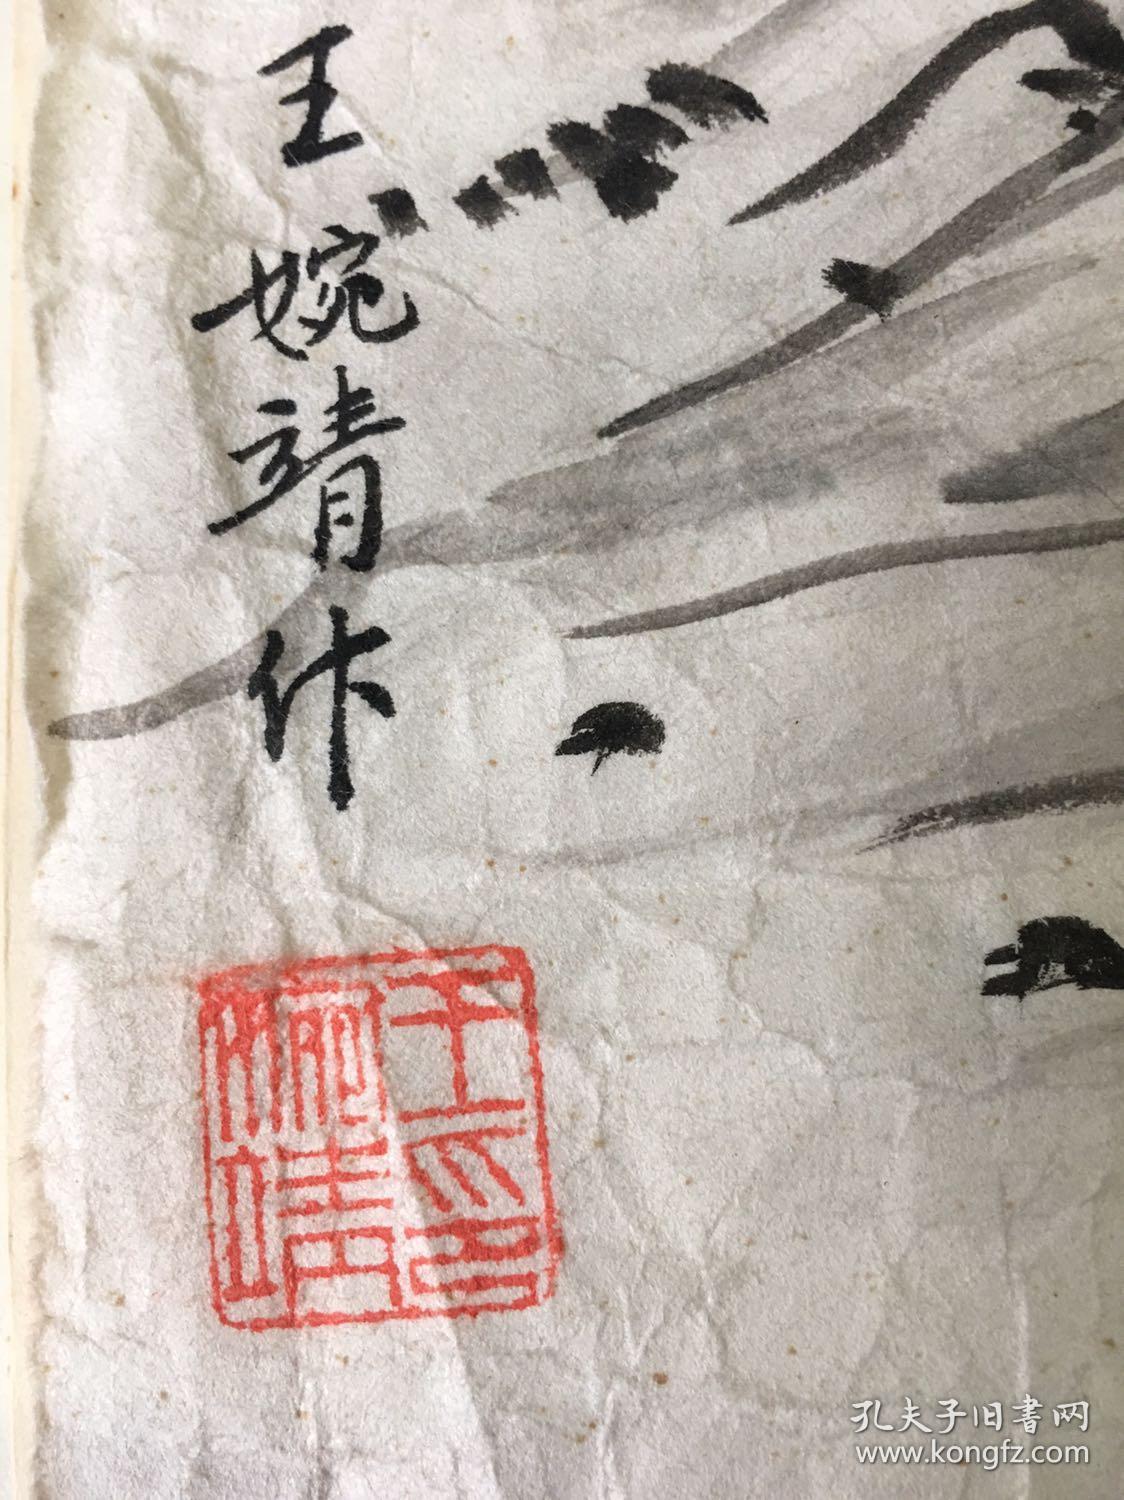 王婉靖作
王印
婉靖
孔夫子旧書网
www.kongfz.com